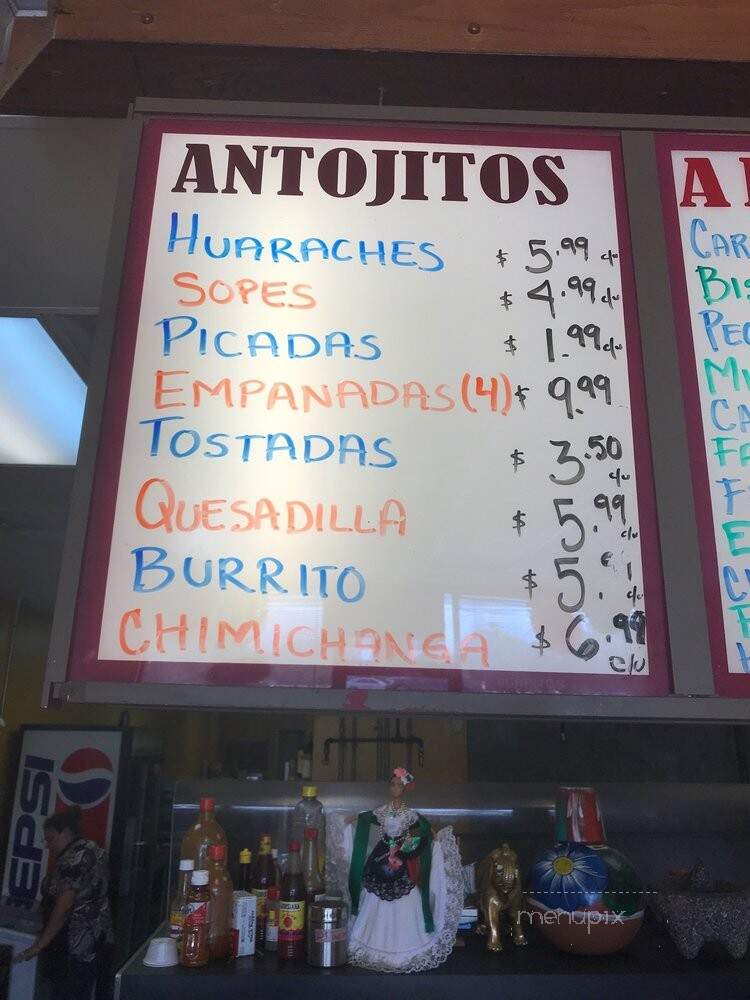 ANTOJITOS
HUARACHES $ 5.99 c/u
SOPES $ 4.99 c/u
PICADAS $ 1.99 c/u
EMPANADAS (4) $ 9.99
TOSTADAS $ 3.50 c/u
QUESADILLA $ 5.99 c/u
BURRITO $ 5. c/u
CHIMICHANGA $ 6.99 c/u
A
CAR
BIS
PEC
CA
PEPSI
menupix